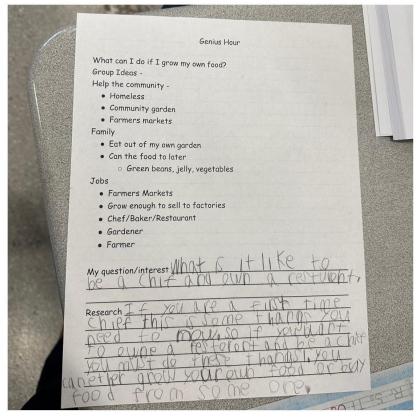 Genius Hour
What can I do if I grow my own food?
Group Ideas -
Help the community -
• Homeless
• Community garden
• Farmers markets
Family
• Eat out of my own garden
• Can the food to later
○ Green beans, jelly, vegetables
Jobs
• Farmers Markets
• Grow enough to sell to factories
• Chef/Baker/Restaurant
• Gardener
• Farmer
My question/interest What is it like to
be a chif and own a resturint,
Research If you are a first time
chief this is some things you
need to so if you want
to owne a resteront and be a chif
you must do these things, you
can ether grow your own food or buy
food from some one.